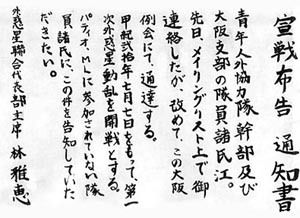 宣戦布告 通知書
青年人外協力隊幹部及び
大阪支部の隊員諸氏江。
先日、メイリングリスト上で御
連絡したが、改めて、この大阪
例会にて、通達する。
甲紀弐拾年七月七日をもって、第一
次外惑星動乱を開戦とする。
パティオ、MLに参加されていない隊
員諸氏に、この件を告知していた
だきたい。
外惑星聯合代表部主席 林 雅恵